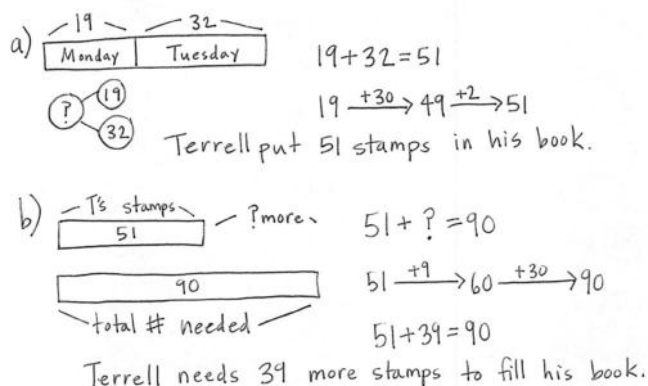 a) 19 32
Monday Tuesday
? 19 32
19+32=51
19 +30 → 49 +2 → 51
Terrell put 51 stamps in his book.
b) T's stamps
51
? more
90
total # needed
51+?=90
51 +9 → 60 +30 → 90
51+39=90
Terrell needs 39 more stamps to fill his book.